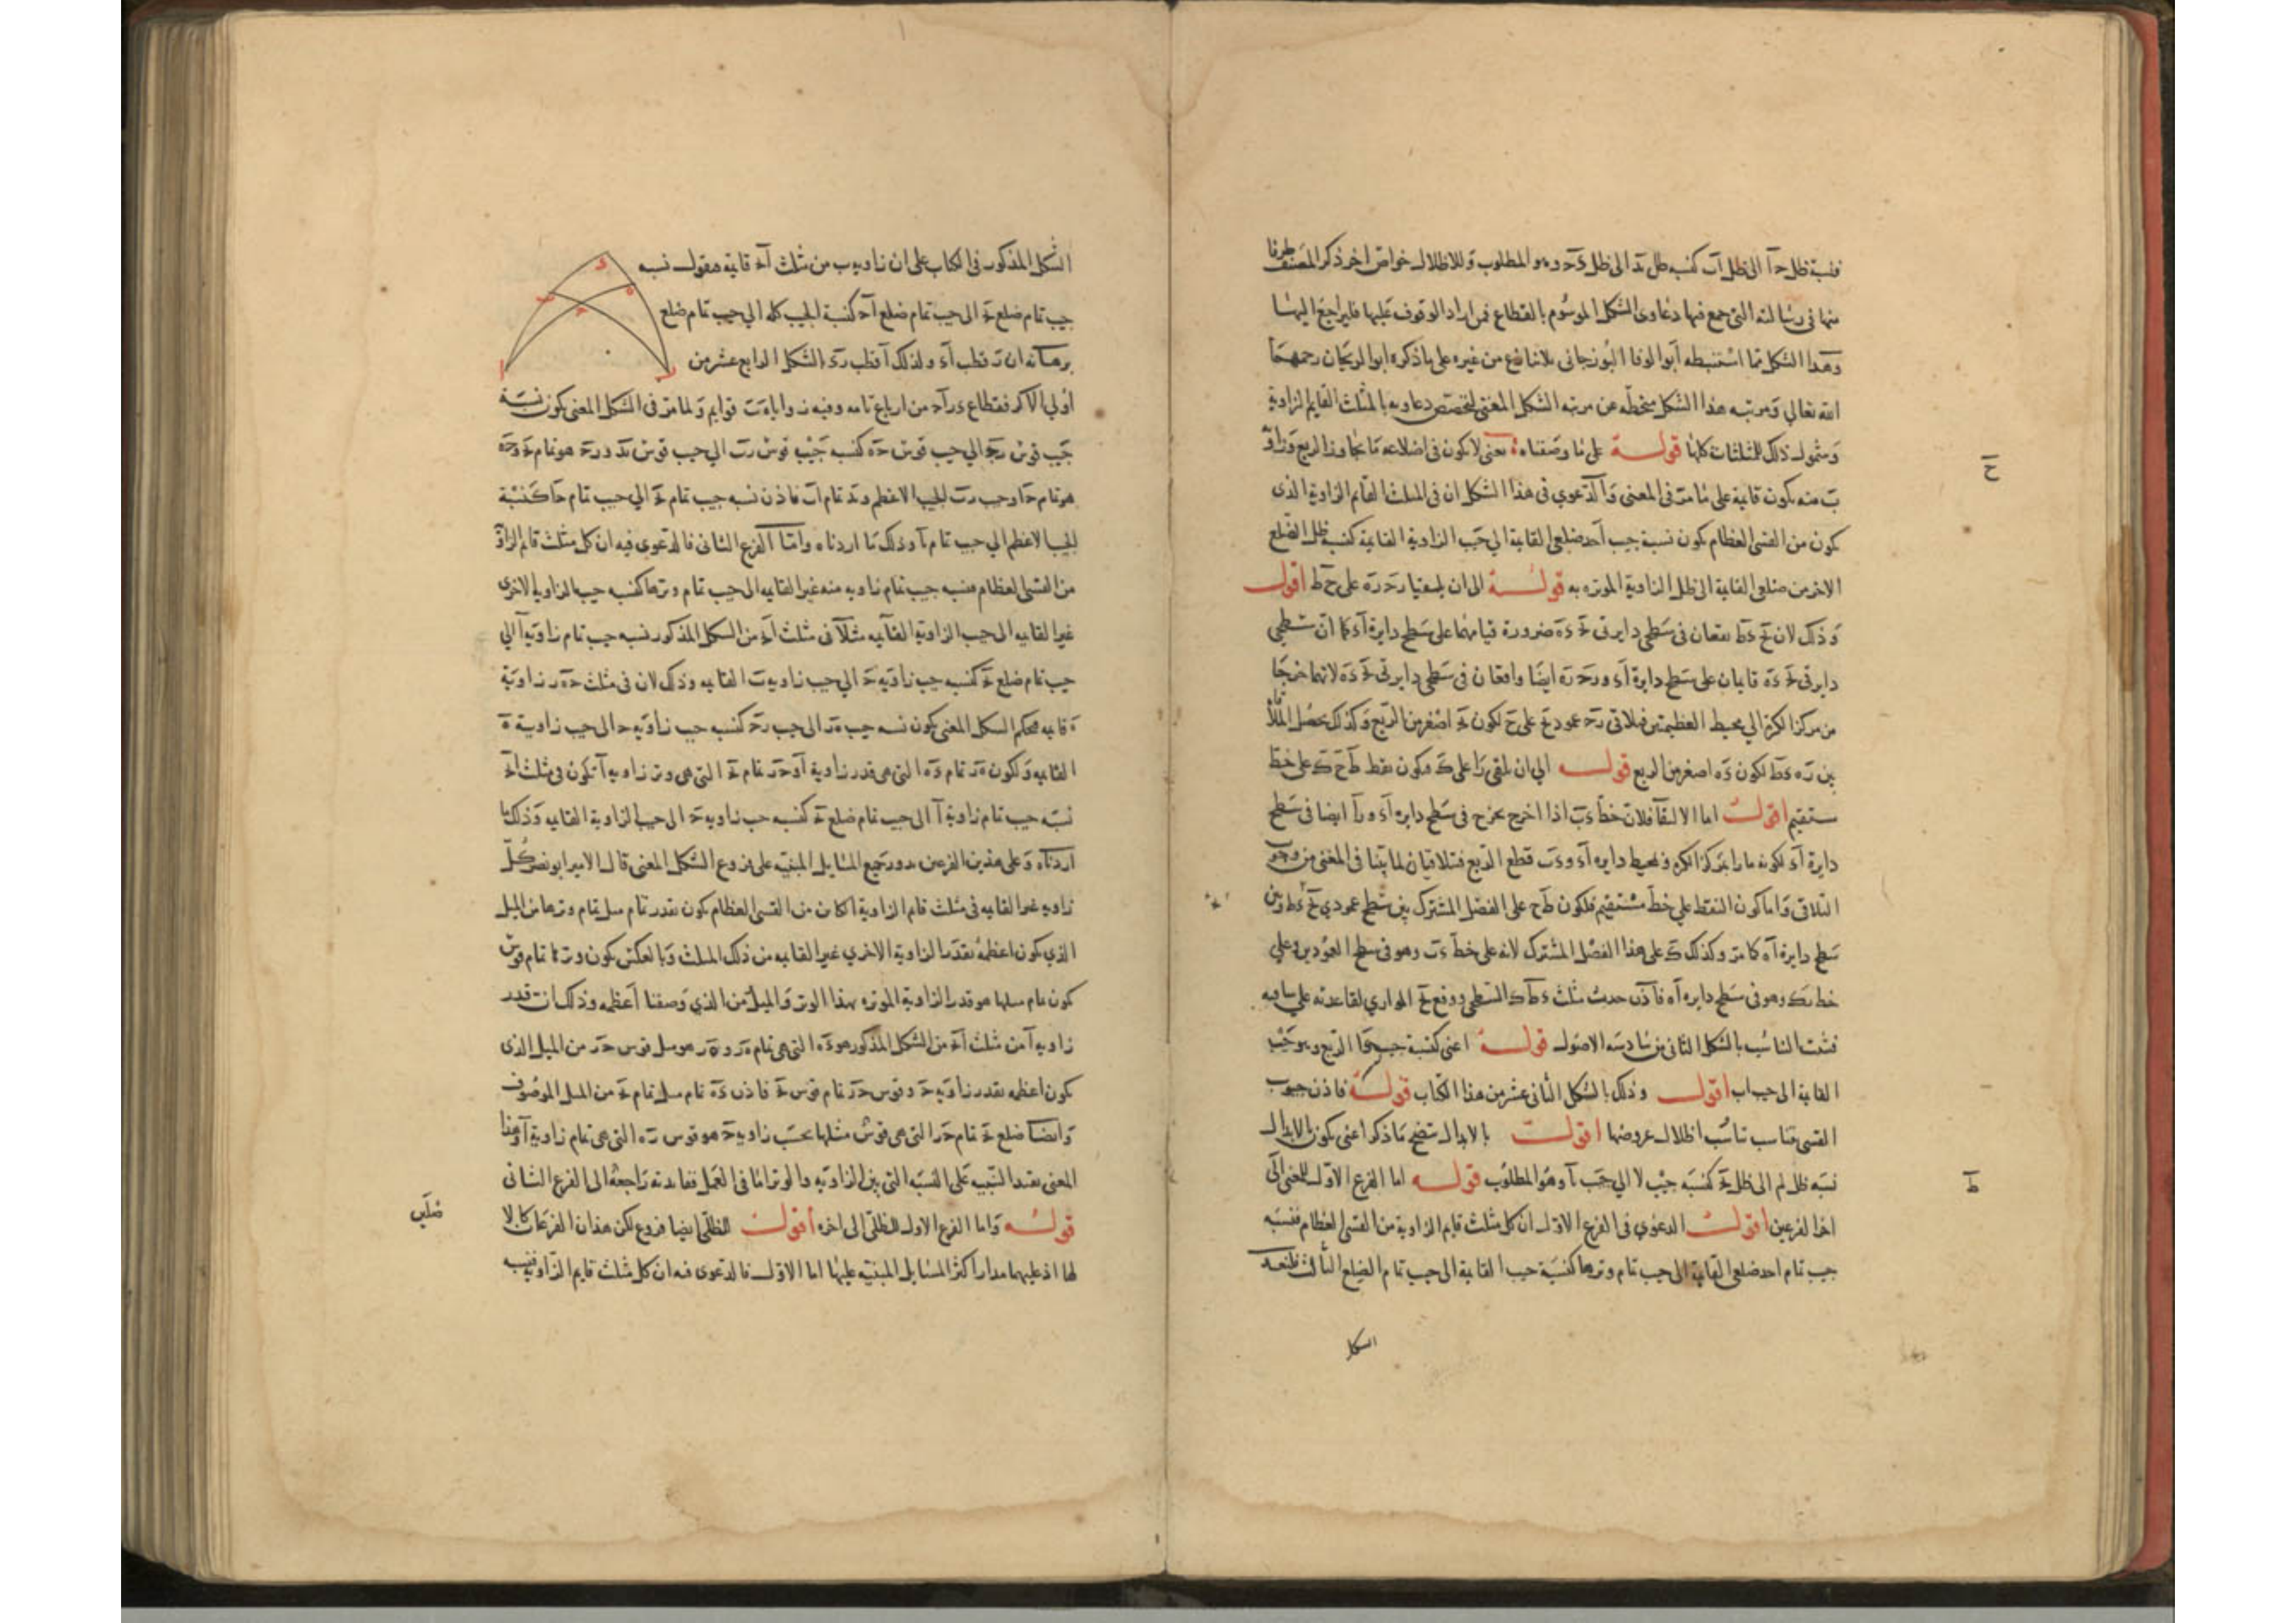 فنسبة ظل حا الى ظل اب كنسبة ظل بد الى ظل ى حد وهو المطلوب وللاظلال خواص اخر ذكر المصنف طرفا
منها فى رسالته التى جمع فيها دعاوى الشكل الموسوم بالقطاع فمن اراد الوقوف عليها فليراجع اليها
وهذا الشكل مما استنبطه ابو الوفا البوزجانى بلا تنازع من غيره على ما ذكره ابو الريحان رحمهما
الله تعالى ومرتبه هذا الشكل منحطه عن مرتبه الشكل المغنى لتخصص دعاويه بالمثلث القايم الزاوية
وشمول ذلك للمثلثات كلها قوله على ما وصفناه يعنى لا يكون فى اضلاعه ما يجاوز الربع وزاوية
ب منه يكون قايمة على ما مر فى المغنى والدعوى فى هذا الشكل ان فى المثلث القايم الزاوية الذى
يكون من القسى العظام يكون نسبة جيب احد ضلعى القايمة الى جيب الزاوية القايمة كنسبة ظل الضلع
الاخر من ضلعى القايمة الى ظل الزاوية الموتره به قوله الى ان يلتقيا ر ح ر ه على ح ط اقول
وذلك لان يح ى ط يقعان فى سطحى دايرتى ى ه ضرورة قيامهما على سطح دايرة اى كما ان سطحى
دايرتى ى ه قايمان على سطح دايرة اى و ر ح ر ه ايضا واقعان فى سطحى دايرتى ى ه لانهما خرجا
من مركز الكرة الى محيط العظيمتين فيلاقى ر ح عمود يح على ح لكون اصغر من الربع وكذلك يحصل الملاقاة
بين ر ه ى ط لكون ى ه اصغر من الربع قوله الى ان يلقى را على ك فيكون نقط ط ح ك على خط
مستقيم اقول اما الالتقا فلان خط ى ب اذا اخرج يخرج فى سطح دايره اى و را ايضا فى سطح
دايرة اى لكونه مارا بمركز الكره ومحيط دايره اى و ى ب قطع الربع فيتلاقيان لما بينا فى المغنى من وجوب
التلاقى واما كون النقط على خط مستقيم فلكون ط ح على الفصل المشترك بين سطح عمودى يح ى ط وبين
سطح دايرة اه كما مر وكذلك ك على هذا الفصل المشترك لانه على خط ى ب وهو فى سطح العمودين وعلى
خط رك وهو فى سطح دايره اه فاذن حدث مثلث ى ط ك السطحى ووقع يح الموازى لقاعدته على ساقيه
فثبت التناسب بالشكل الثانى من سادسه الاصول قوله اعنى كنسبة جيب الربع وهو جيب
القايمة الى جيب اب اقول وذلك بالشكل الثانى عشر من هذا الكتاب قوله فاذن جيوب
القسى تناسب تناسب اظلال عروضها اقول بالابدال يتضح ما ذكر اعنى يكون بالابدال
نسبة ظل الى ظل كنسبة جيب الى جيب ا وهو المطلوب قوله اما الفرع الاول للمغنى الى
اخر الفرعين اقول الدعوى فى الفرع الاول ان كل مثلث قايم الزاوية من القسى العظام فنسبة
جيب تمام احد ضلعى القايمة الى جيب تمام وترها كنسبة جيب القايمة الى جيب تمام الضلع الثالث فلنعد
الشكل
ح
ط
الشكل المذكور فى الكتاب على ان زاوية ب من مثلث اب ح قايمة فنقول نسبة
جيب تمام ضلع ب ح الى جيب تمام ضلع اح كنسبة الجيب كله الى جيب تمام ضلع
برهانه ان ر قطب اى ولذلك ا قطب رى بالشكل الرابع عشر من
اولى الاكر فقطاع ى ر اح من ارباع تامه وفيه زوايا ه ب قوايم ولما مر فى الشكل المغنى يكون نسبة
جيب قوس رح الى جيب قوس ح ه كنسبة جيب قوس رب الى جيب قوس بد و رح هو تمام ب ح و ح ه
هو تمام حا وجيب رب الجيب الاعظم و بد تمام اب فاذن نسبه جيب تمام ب ح الى جيب تمام حا كنسبة
الجيب الاعظم الى جيب تمام با وذلك ما اردناه واما الفرع الثانى فالدعوى فيه ان كل مثلث قايم الزاوية
من القسى العظام فنسبه جيب تمام زاويه منه غير القايمه الى جيب تمام وترها كنسبه جيب الزاوية الاخرى
غير القايمه الى جيب الزاوية القايمه مثلا فى مثلث اب ح من الشكل المذكور نسبه جيب تمام زاوية ا الى
جيب تمام ضلع ب ح كنسبه جيب زاوية ح الى جيب زاوية ب القايمه وذلك لان فى مثلث ح ه ر زاوية
ه قايمه فبحكم الشكل المغنى يكون نسبه جيب ه ر الى جيب رح كنسبه جيب زاوية ح الى جيب زاوية ه
القايمه ولكون ه ر تمام ى ه التى هى قدر زاوية ا و ح ر تمام ب ح التى هى وتر زاويه ا يكون فى مثلث اب ح
نسبه جيب تمام زاوية ا الى جيب تمام ضلع ب ح كنسبه جيب زاويه ح الى جيب الزاوية القايمه وذلك ما
اردناه وعلى هذين الفرعين يدور جميع المسايل المبنيه على فروع الشكل المغنى قال الامير ابو نصر كل
زاويه غير القايمه فى مثلث قايم الزاوية اذا كان من القسى العظام يكون بقدر تمام ميل تمام وترها من الميل
الذى يكون اعظمه بقدر الزاوية الاخرى غير القايمه من ذلك المثلث وبالعكس يكون وترها تمام قوس
يكون تمام ميلها هو قدر الزاوية الموتره بهذا الوتر والميل من الذى وصفنا اعظمه وذلك ان قدر
زاوية ا من مثلث اب ح من الشكل المذكور هو ى ه التى هى تمام ه ر و ه ر هو ميل قوس ح ر من الميل الذى
يكون اعظمه بقدر زاوية ح وقوس ح ر تمام قوس ب ح فاذن ى ه تمام ميل تمام ب ح من الميل الموصوف
وايضا ضلع ب ح تمام ح ر التى هى قوس ميلها بحسب زاوية ح هو قوس ر ه التى هى تمام زاوية ا وهذا
المعنى يفيد التنبيه على النسبة التى بين الزاوية والوتر اما فى العمل ففايدته راجعة الى الفرع الثانى
قوله واما الفرع الاول للظلى الى اخره اقول للظلى ايضا فروع لكن هذان الفرعان كالاصل
لها اذ عليهما مدار اكثر المسايل المبنيه عليها اما الاول فالدعوى فيه ان كل مثلث قايم الزاوية فنسبه
ضلعى